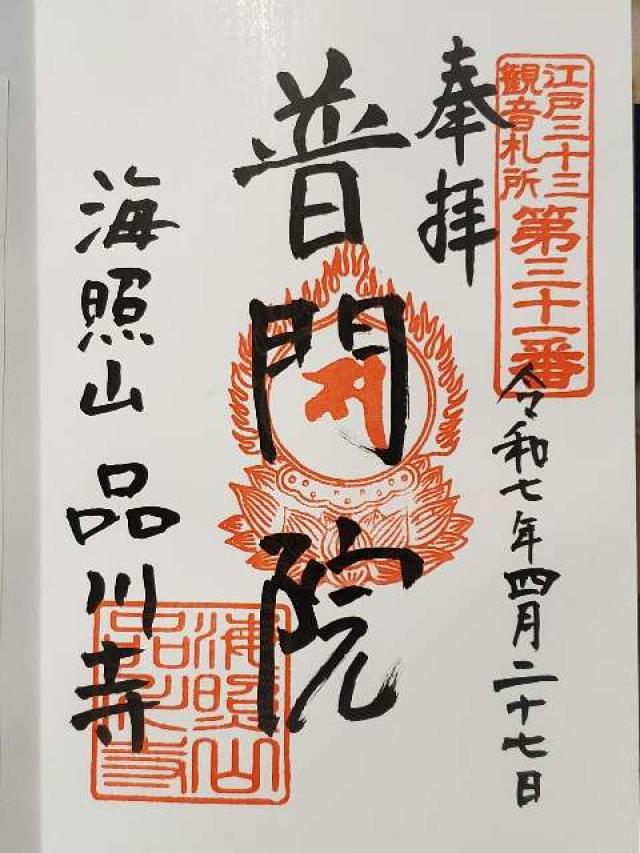 江戸三十三
観音札所
第三十一番
奉拝
令和七年四月二十七日
普門院
海照山 品川寺
海照山
品川寺